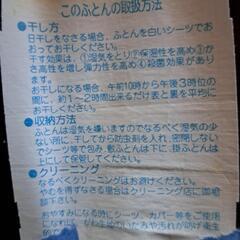 このふとんの取扱方法
●干し方
日干しをなさる場合、ふとんを白いシーツでおおってお干しください。
干す効果は、①湿気をとり②保温性を高め③かさ高性を増し弾力性を高め④殺菌効果があります。
お干しになる場合、午前10時から午後3時位の間に、約1〜2時間出来るだけ表と裏を平均にお干しください。
●収納方法
ふとんは湿気を嫌いますのでなるべく湿気の少ない所に、干してから防虫剤を入れ、密閉しないでシーツ等で包み、敷ふとんは下に、掛ふとんは上にして保管してください。
●クリーニング
なるべくクリーニングはされないでください。
やむを得ずなさる場合はクリーニング店に御相談下さい。
おやすみになる時シーツ、カバー等をご使用に